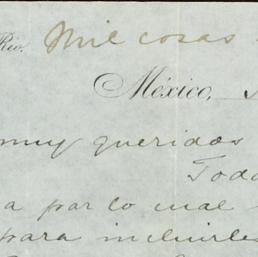 Rev. Mil cosas
México,
muy queridos
Toda
a par lo cual
para incluirles